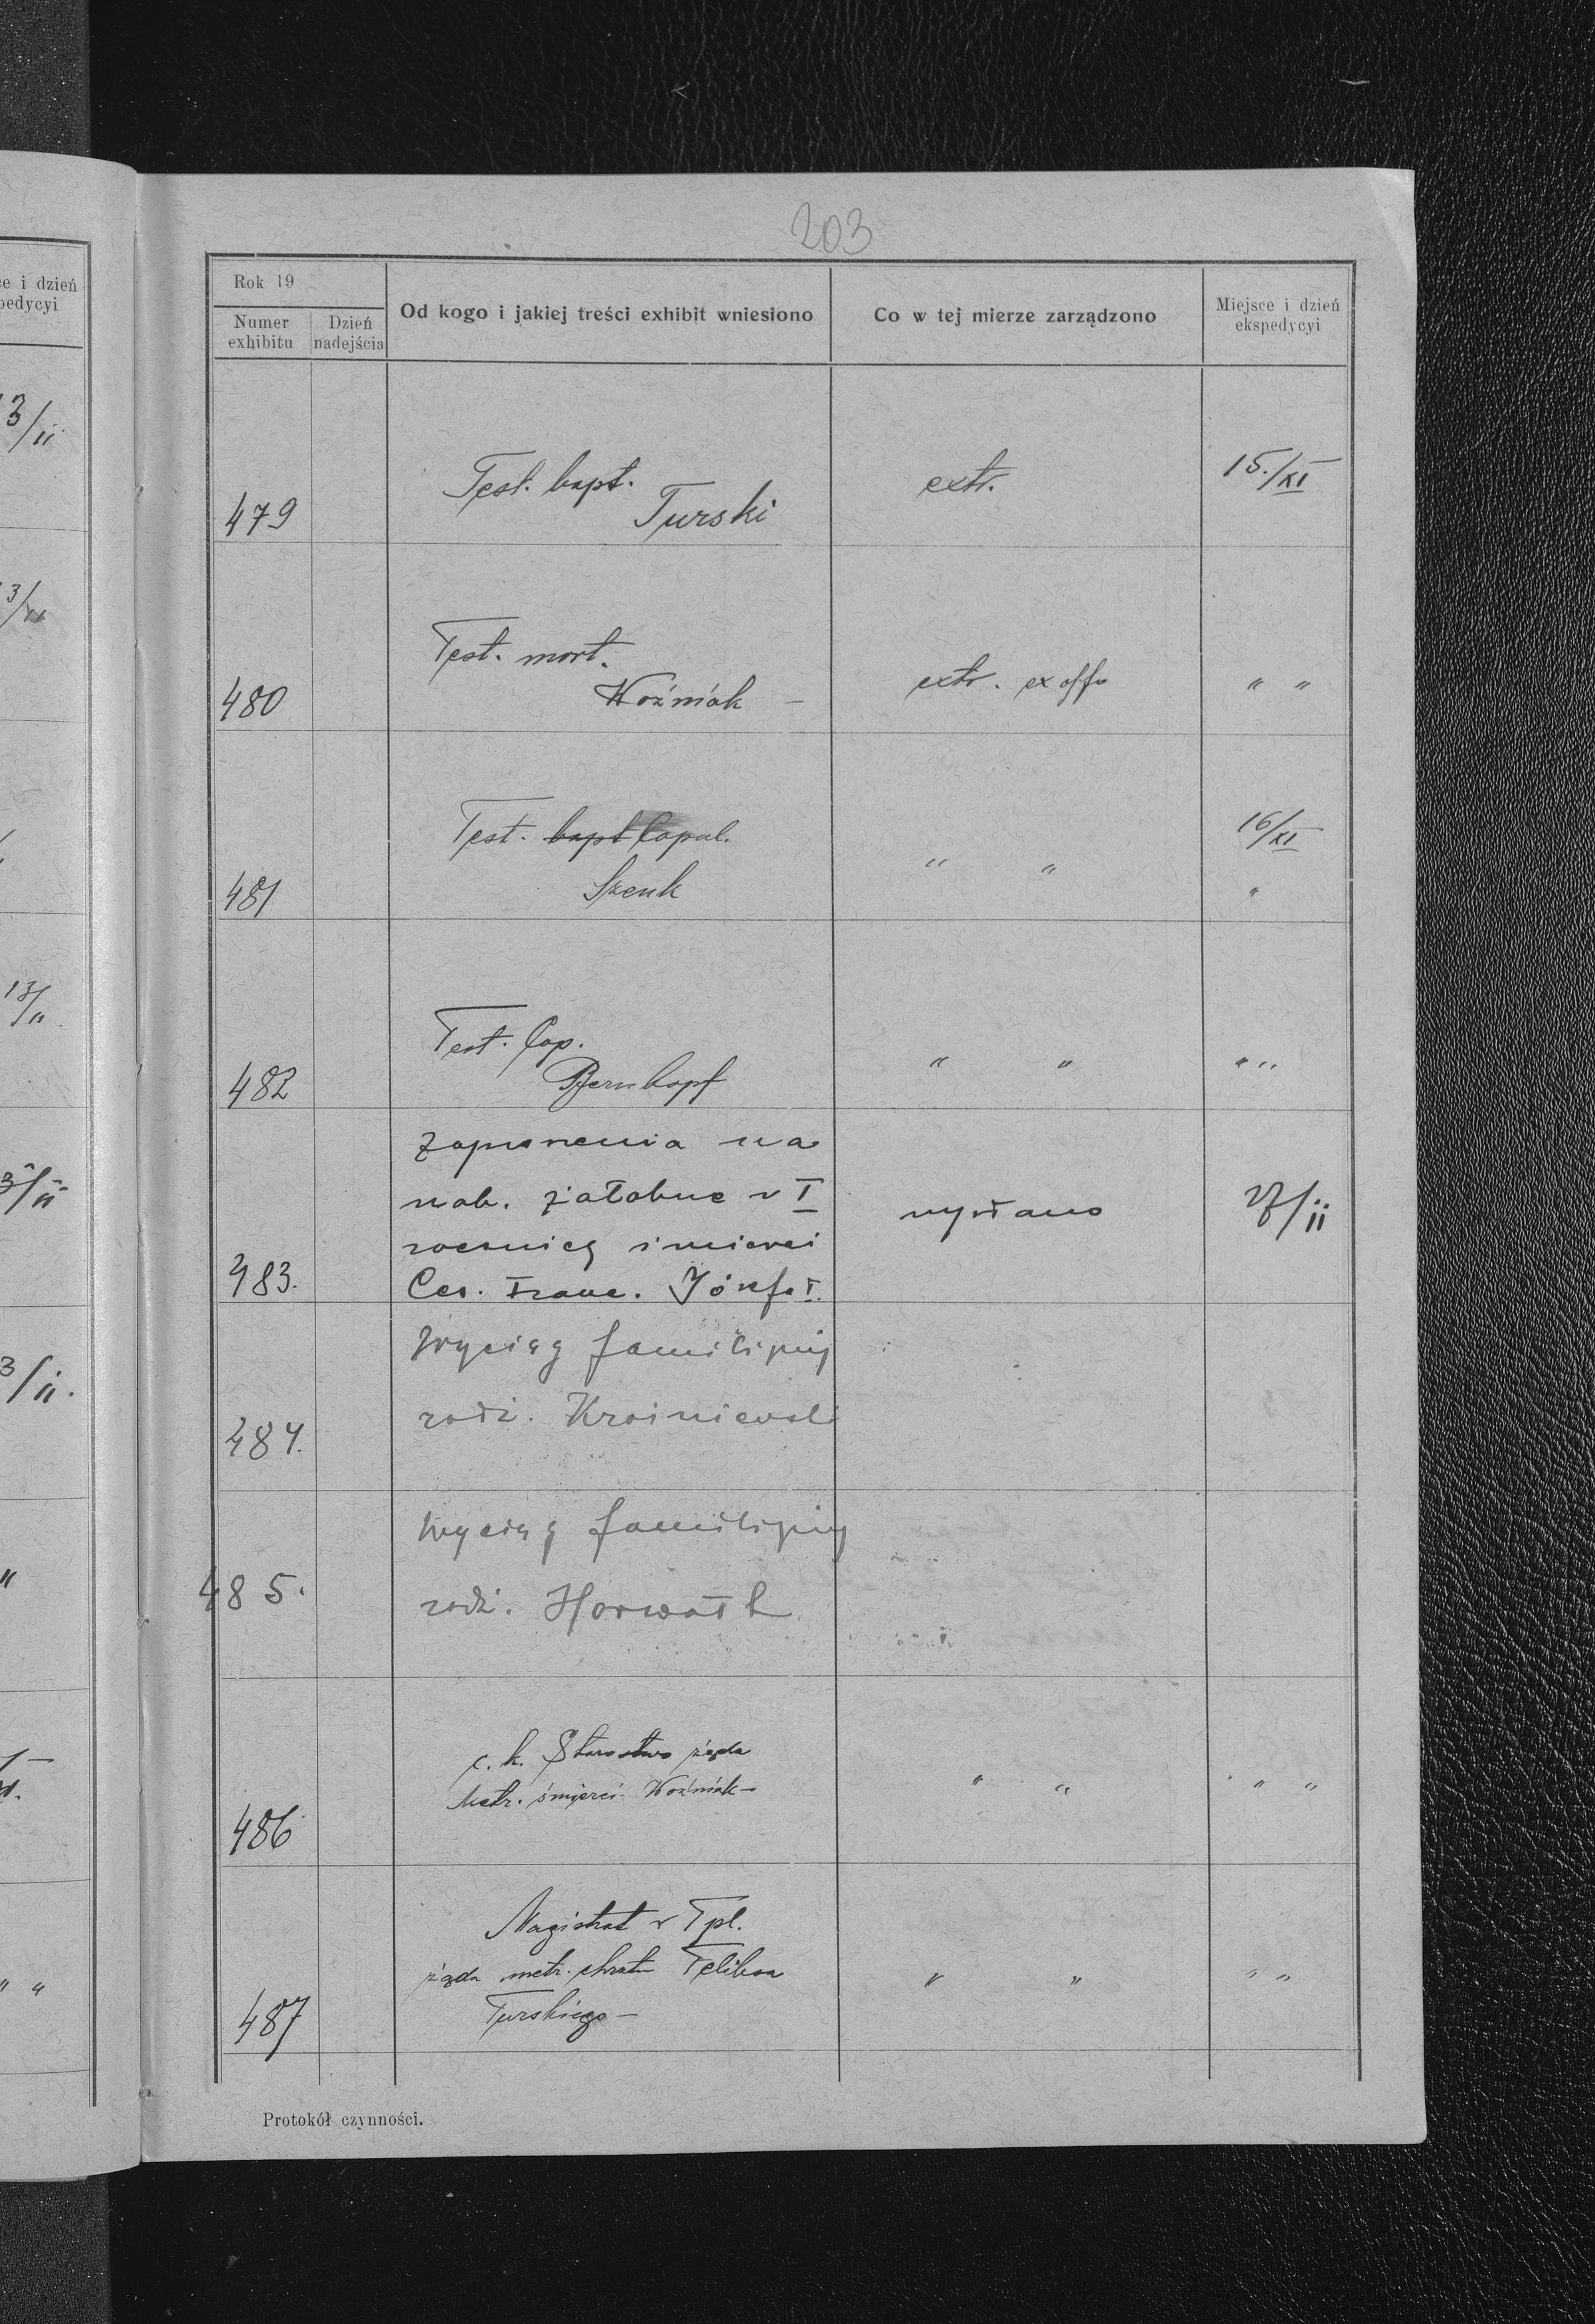 203
ce i dzień
pedycyi
Rok 19
Numer exhibitu
Dzień nadejścia
Od kogo i jakiej treści exhibit wniesiono
Co w tej mierze zarządzono
Miejsce i dzień ekspedycyi
479 Test. bapt. extr. 15./XI
Turski
480 Test. mort. extr. ex offo " "
Woźniak –
481 Test. bapt Copul. " " 16/XI
Szenk "
482 Test. Cop. " " " "
Bernkopf
na
nab. żałobne w I wysłano /ii
rocznicę śmierci
483. Ces. Franc. Józefa I.
Wyciąg familijny
484. rodz.
Wyciąg familijny
485. rodz. Horwath
c. k. Starostwo żąda " " " "
486 Metr. śmierci Woźniak –
Magistrat w Tpl.
żąda metr. chrztu Feliksa " " " "
487 Turskiego –
Protokół czynności.